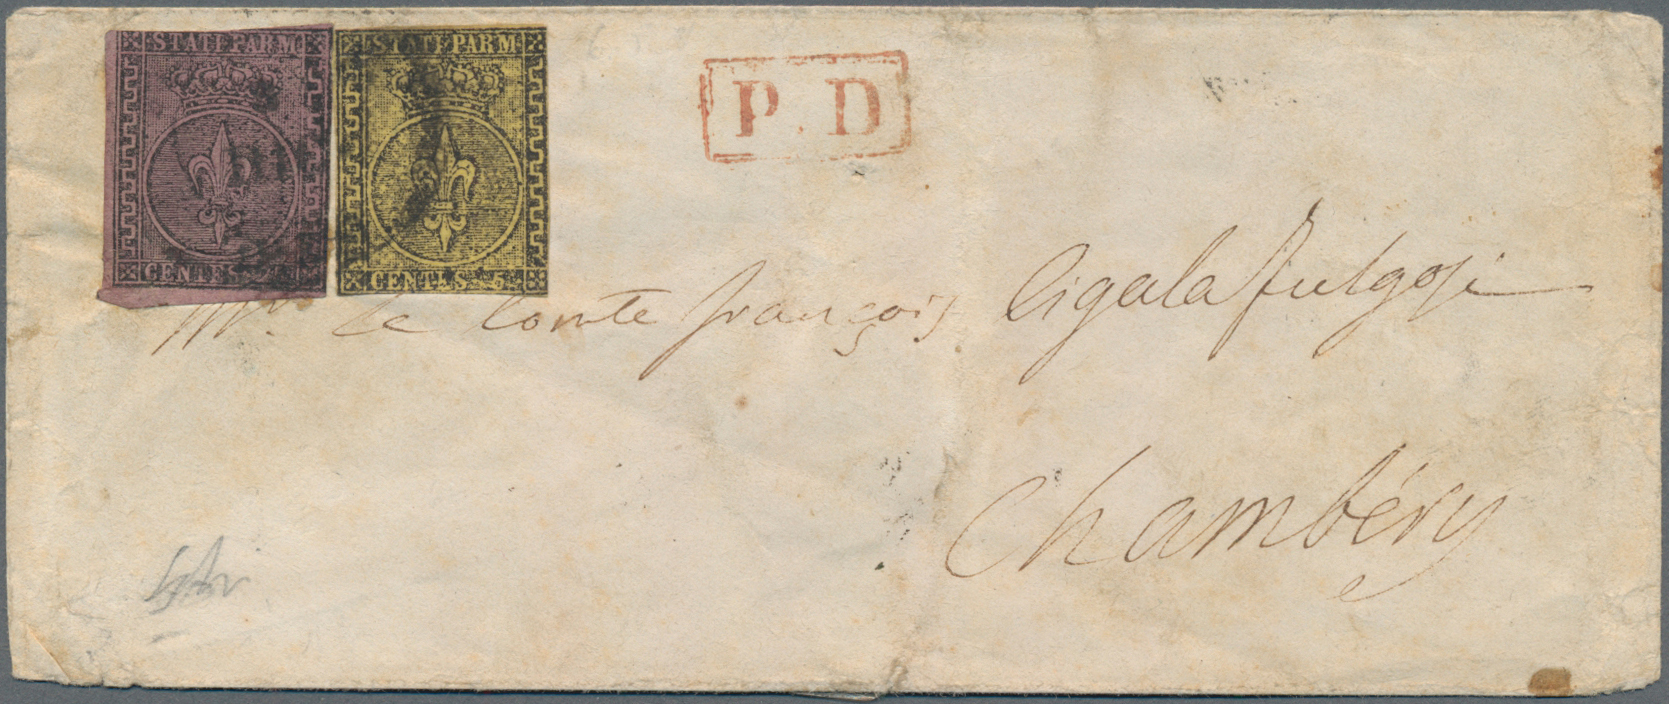 STATI PARM
CENTES.
STATI PARM
CENTES. 5
P. D
Mr. Le Comte françois Cigala fulgosi
Chambéry